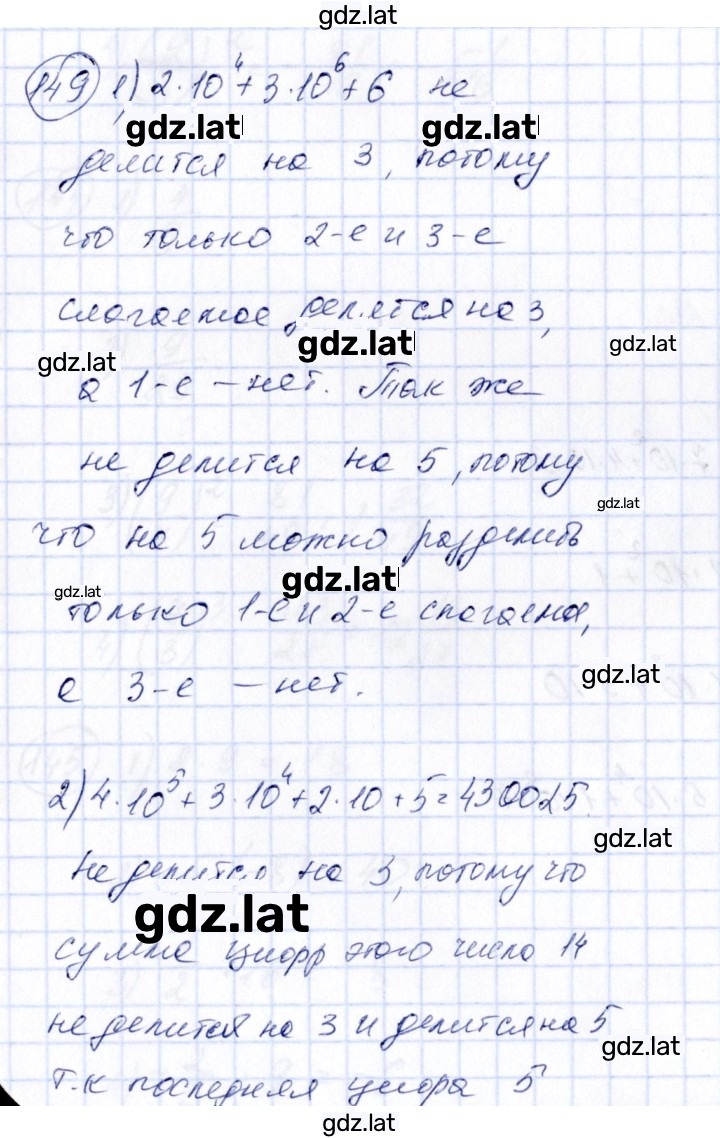 gdz.lat
149 1) 2·10⁴+3·10⁶+6 не
gdz.lat gdz.lat
делится на 3, потому
что только 2-е и 3-е
слагаемое делятся на 3,
gdz.lat gdz.lat gdz.lat
а 1-е — нет. Так же
не делится на 5, потому
gdz.lat
что на 5 можно разделить
gdz.lat gdz.lat
только 1-е и 2-е слагаемое,
gdz.lat
а 3-е — нет.
2) 4·10⁵+3·10⁴+2·10+5=430025
gdz.lat
Не делится на 3, потому что
gdz.lat
сумма цифр этого число 14
не делится на 3 и делится на 5
gdz.lat
т.к последняя цифра 5
gdz.lat